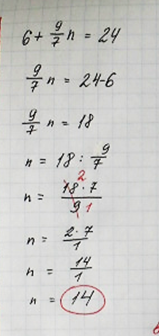 6 + 9/7 n = 24
9/7 n = 24-6
9/7 n = 18
n = 18 : 9/7
n = 18·7/9 2 1
n = 2·7/1
n = 14/1
n = 14